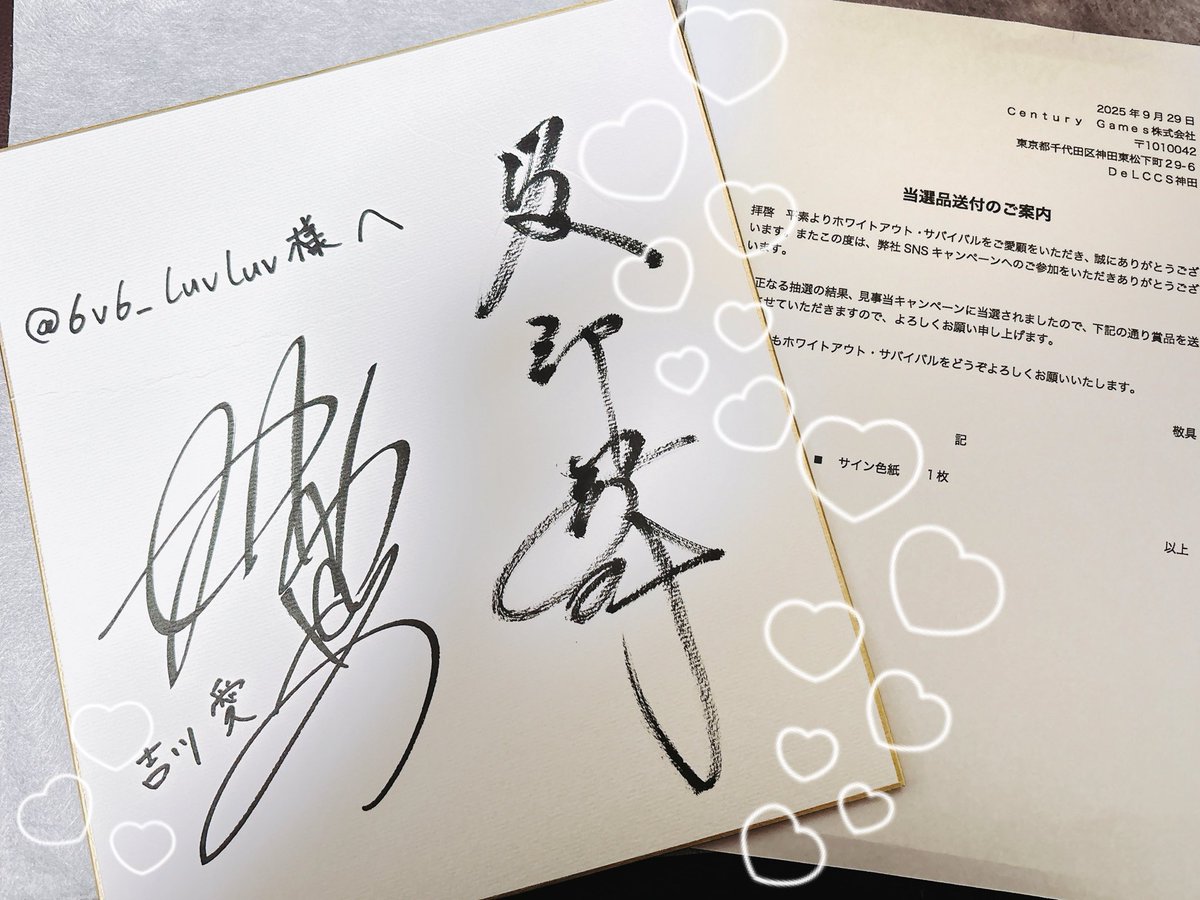 @6v6_luvluv様へ
吉川愛
2025年9月29日
Century Games株式会社
〒1010042
東京都千代田区神田東松下町29-6
DeLCCS神田
当選品送付のご案内
拝啓 平素よりホワイトアウト・サバイバルをご愛顧をいただき、誠にありがとうござ
います。またこの度は、弊社SNSキャンペーンへのご参加をいただきありがとうござ
います。
正なる抽選の結果、見事当キャンペーンに当選されましたので、下記の通り賞品を送
させていただきますので、よろしくお願い申し上げます。
もホワイトアウト・サバイバルをどうぞよろしくお願いいたします。
敬具
記
■ サイン色紙 1枚
以上